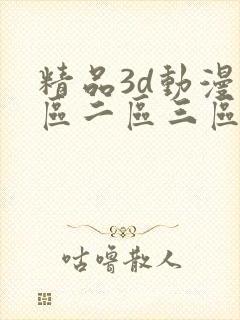 精品3d動漫
區二區三區
咕嚕散人